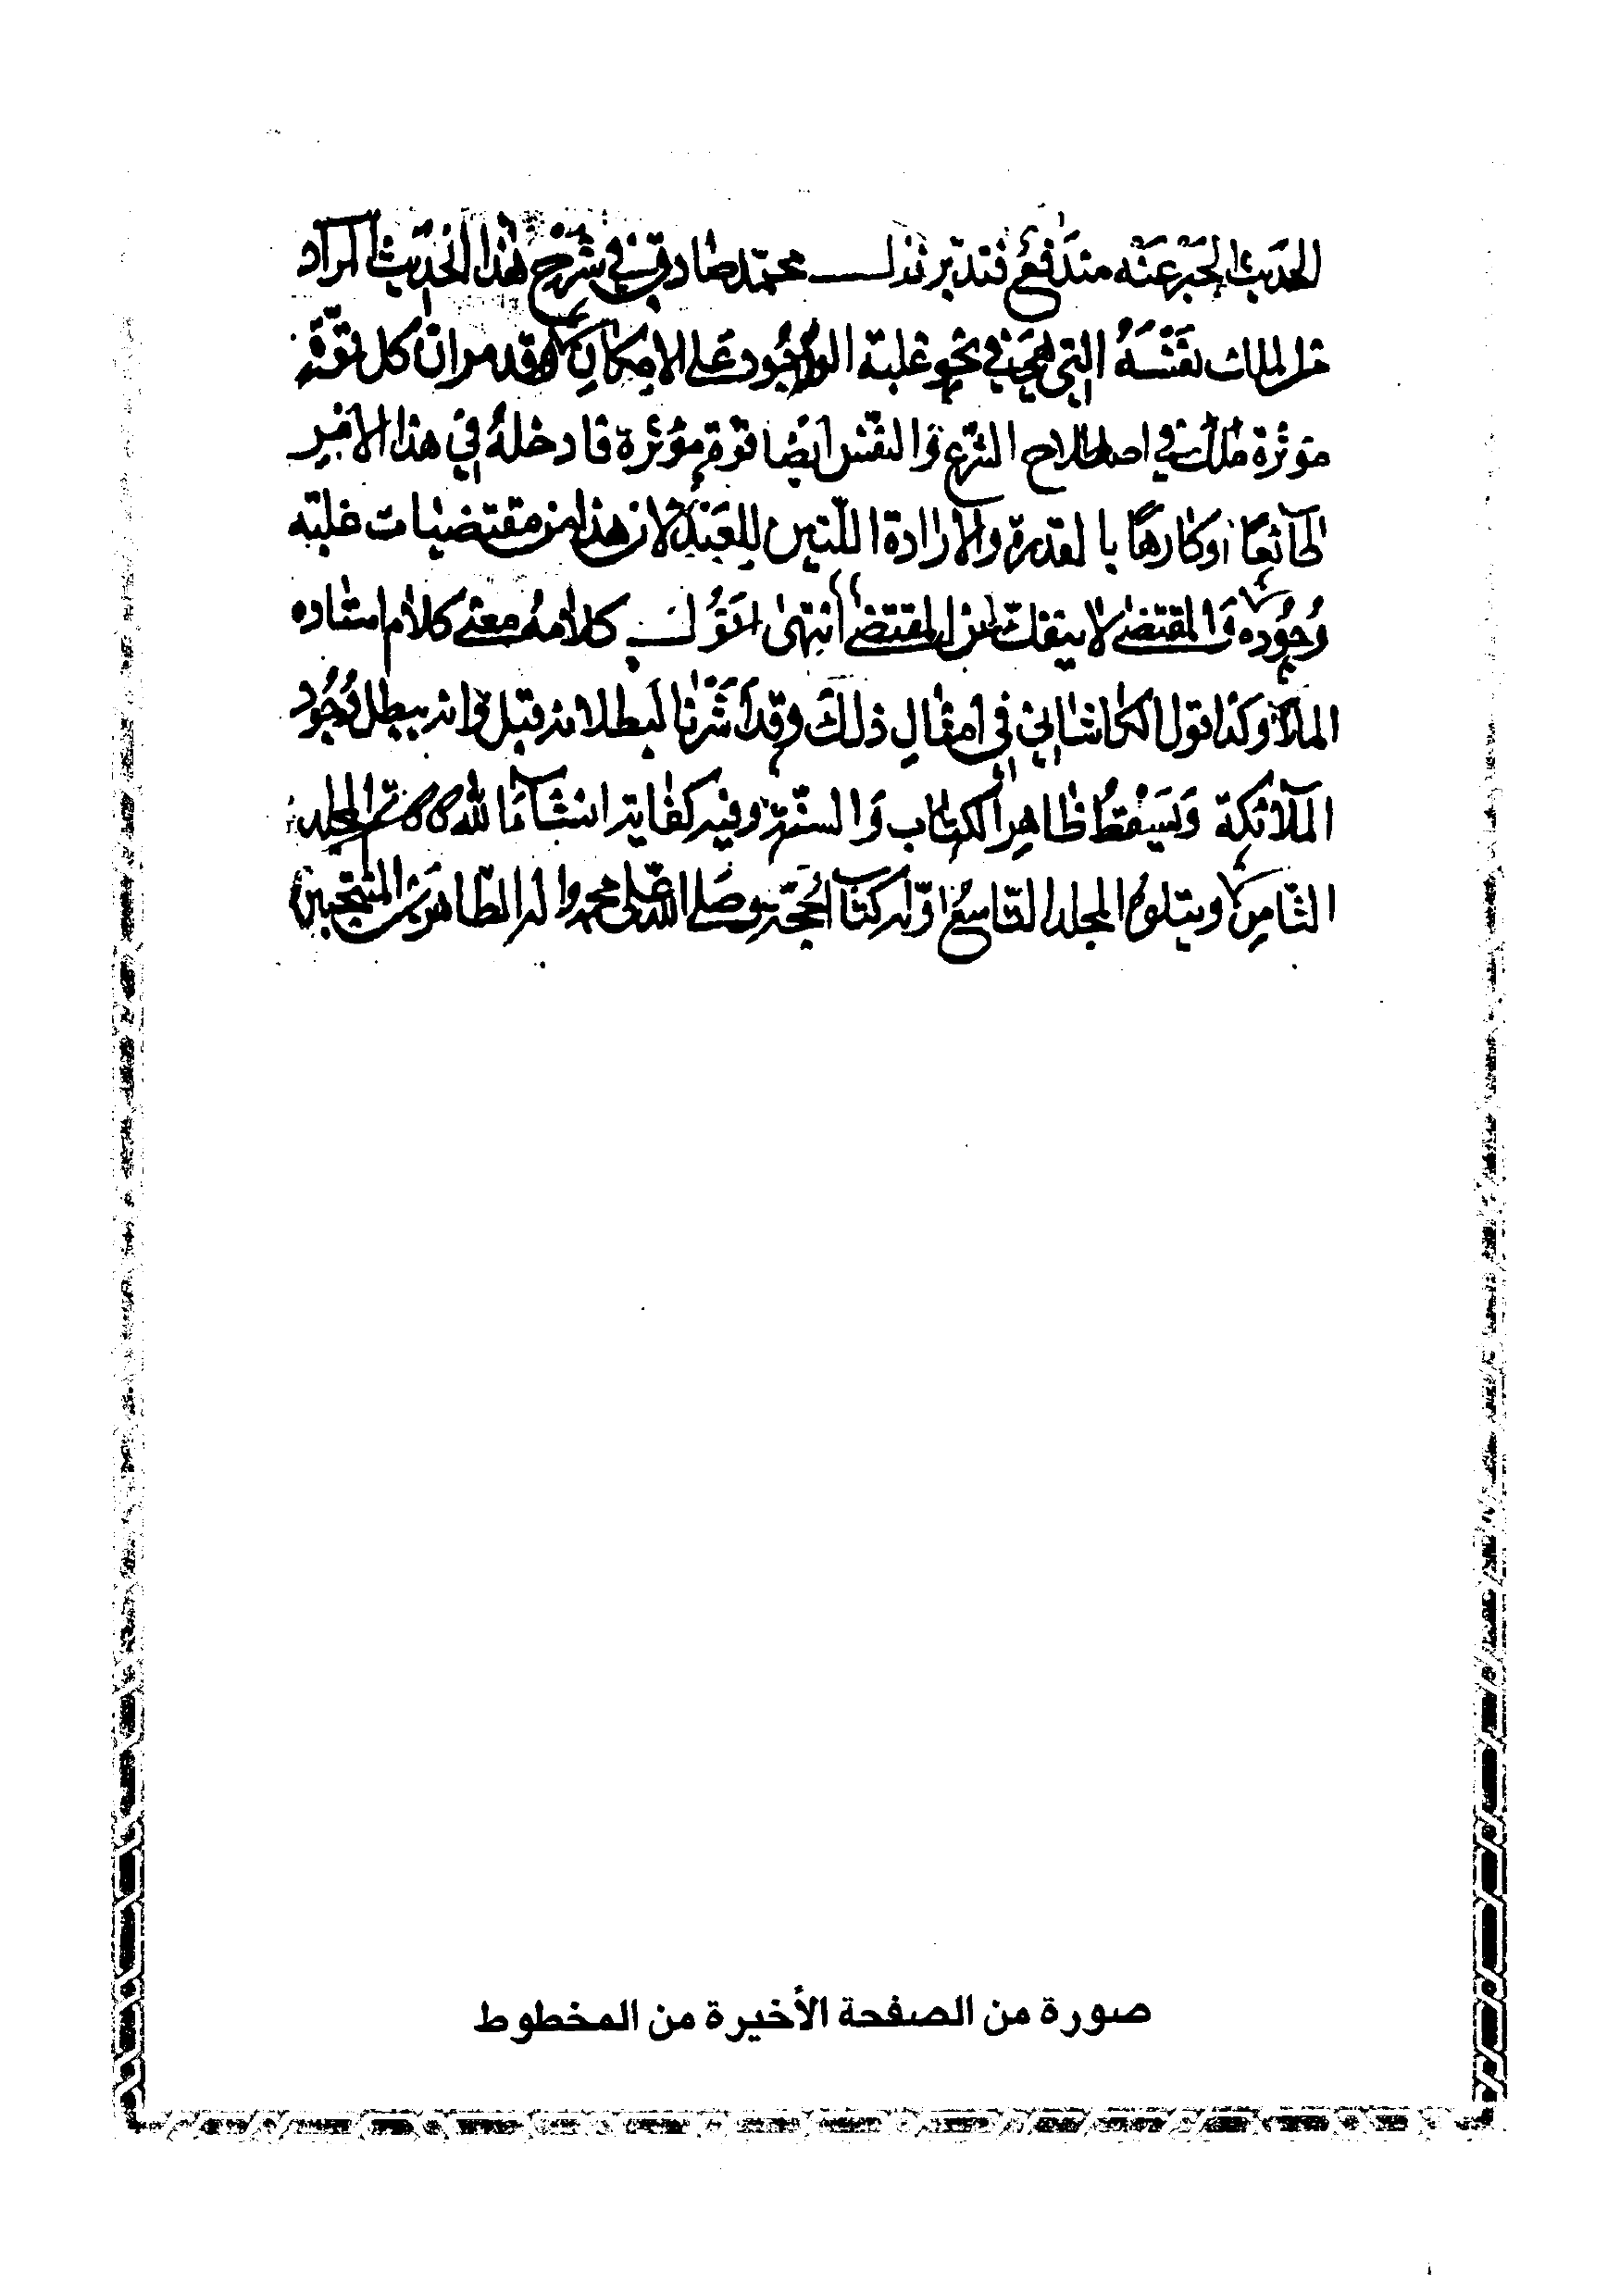 الحديث المخبر عنه متدافع فتدبر قال محمد صادق في شرح هذا الحديث المراد
من الملك نفسه التي هي في نحو غلبة الوجود على الامكان وقد مر ان كل قوة
مؤثرة ملك في اصطلاح الشرع والنفس ايضا قوة مؤثرة فادخله في هذا الامر
طائعا او كارها با لقدرة والارادة اللتين للعبد لان هذا من مقتضيات غلبة
وجوده والمقتضى لا ينفك عن المقتضى انتهى اقول كلامه معنى كلام استاده
الملا وكذا قول الكاشاني في امثال ذلك وقد اشرنا لبطلانه قبل وانه يبطل وجود
الملائكة ويسقط ظاهر الكتاب والسنة وفيه كفاية انشآءالله تم المجلد
الثامن ويتلوه المجلد التاسع اوله كتاب الحجة وصلى الله على محمد واله الطاهرين المنتجبين
صورة من الصفحة الأخيرة من المخطوط